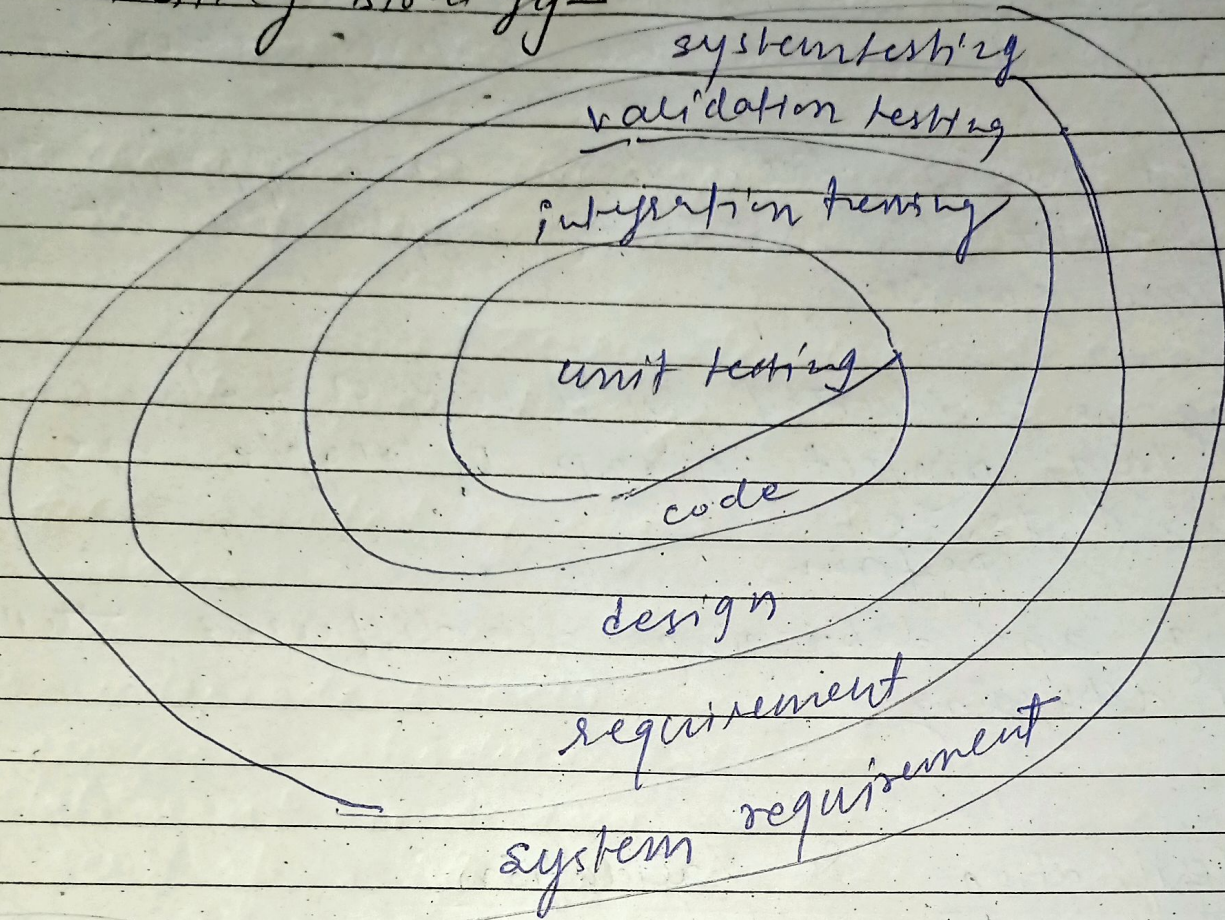 system testing
validation testing
integration testing
unit testing
code
design
requirement
system requirement